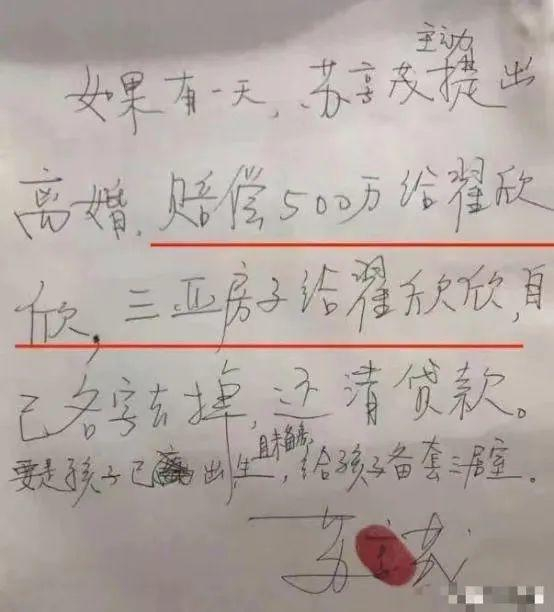 主动
如果有一天,苏享茂提出
离婚,赔偿500万给翟欣
欣,三亚房子给翟欣欣,自
己名字去掉,还清贷款。
要是孩子已出生 且未备房,给孩子备套三居室。
苏享茂